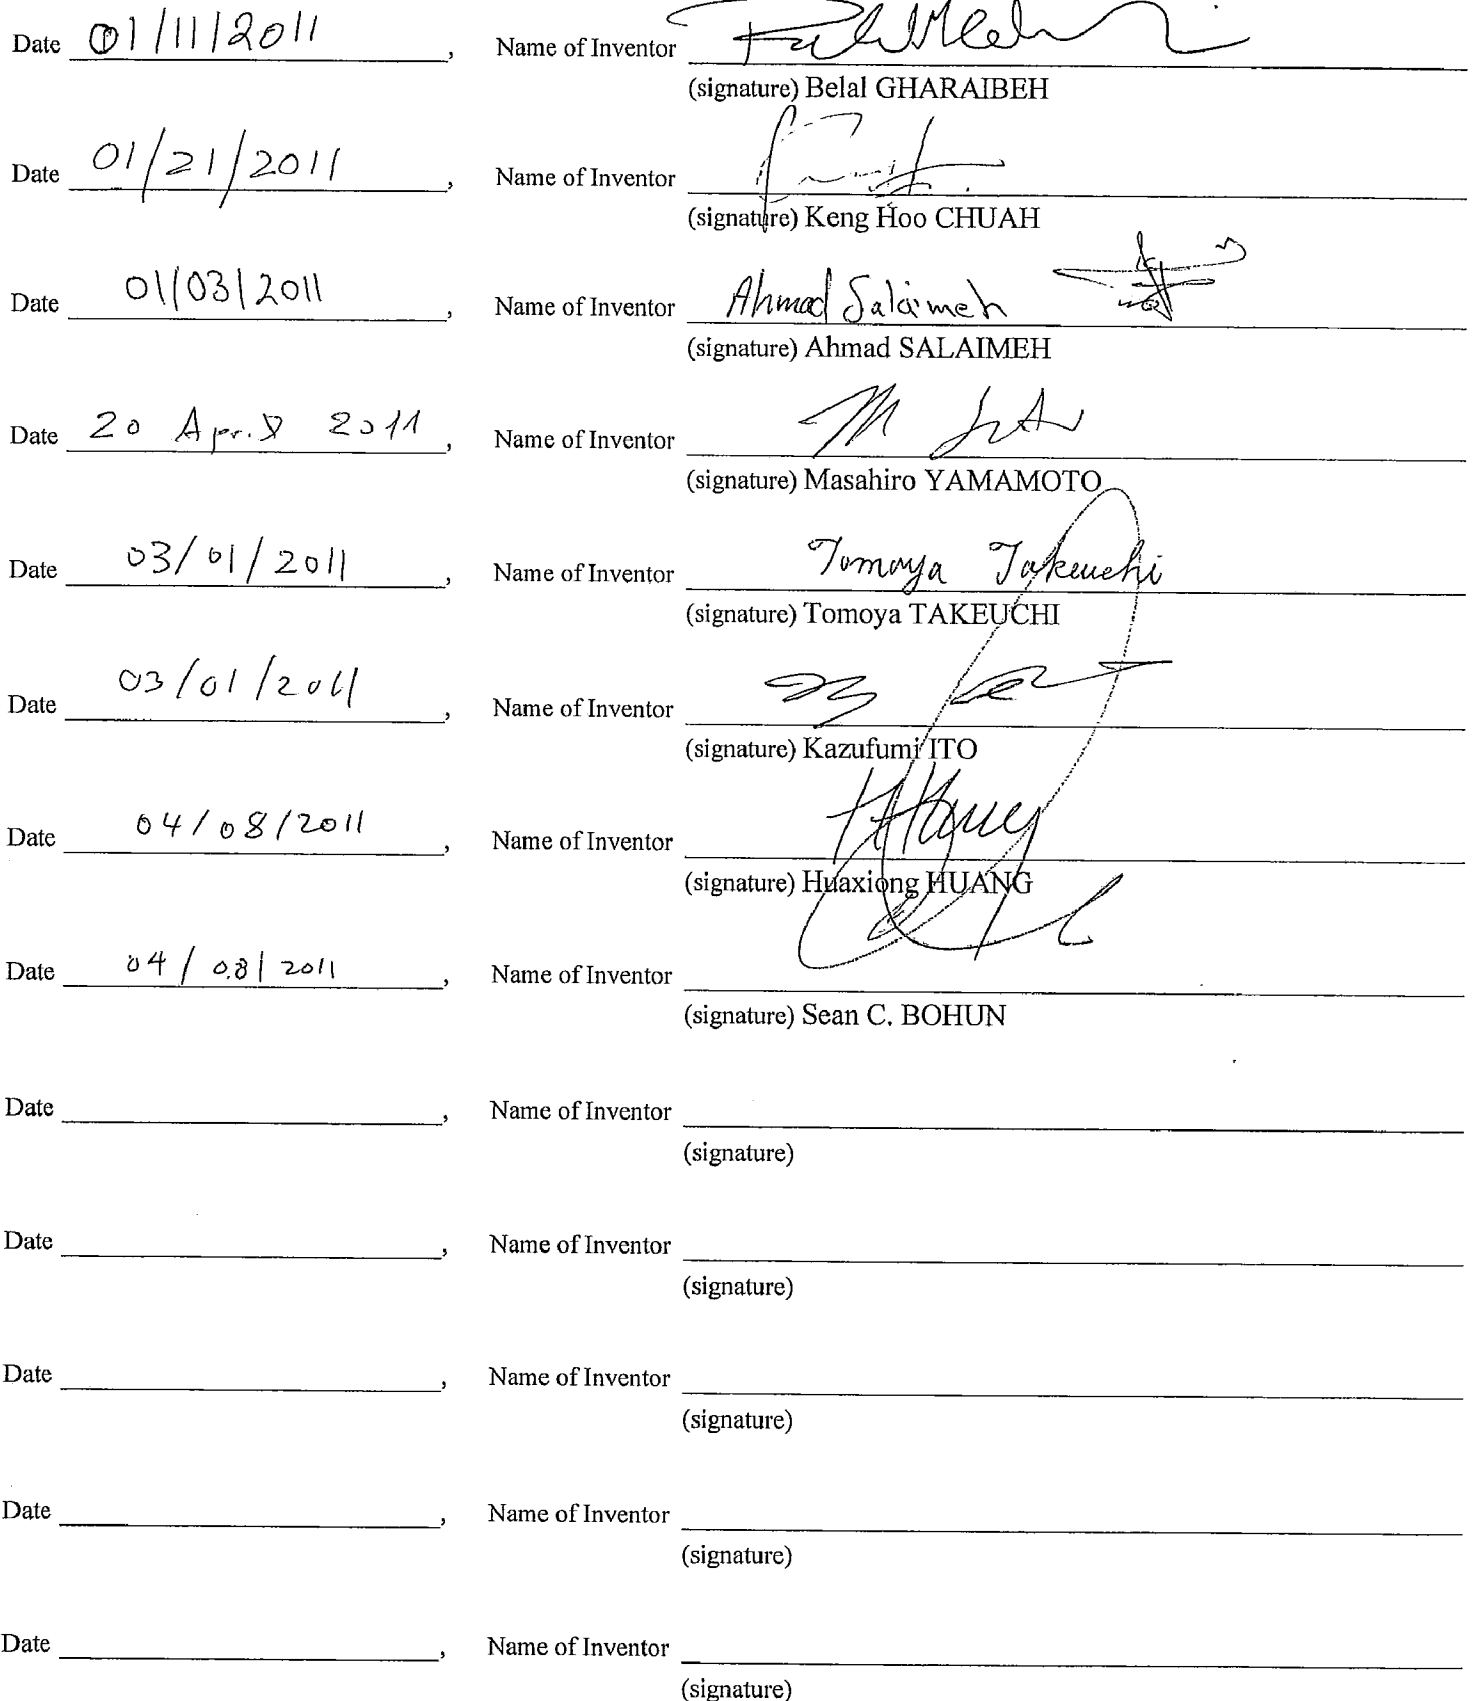 Date 01/11/2011, Name of Inventor
(signature) Belal GHARAIBEH
Date 01/21/2011, Name of Inventor
(signature) Keng Hoo CHUAH
Date 01/03/2011, Name of Inventor Ahmad Salaimeh
(signature) Ahmad SALAIMEH
Date 20 April 2011, Name of Inventor
(signature) Masahiro YAMAMOTO
Date 03/01/2011, Name of Inventor Tomoya Takeuchi
(signature) Tomoya TAKEUCHI
Date 03/01/2011, Name of Inventor
(signature) Kazufumi ITO
Date 04/08/2011, Name of Inventor
(signature) Huaxiong HUANG
Date 04/08/2011, Name of Inventor
(signature) Sean C. BOHUN
Date , Name of Inventor
(signature)
Date , Name of Inventor
(signature)
Date , Name of Inventor
(signature)
Date , Name of Inventor
(signature)
Date , Name of Inventor
(signature)